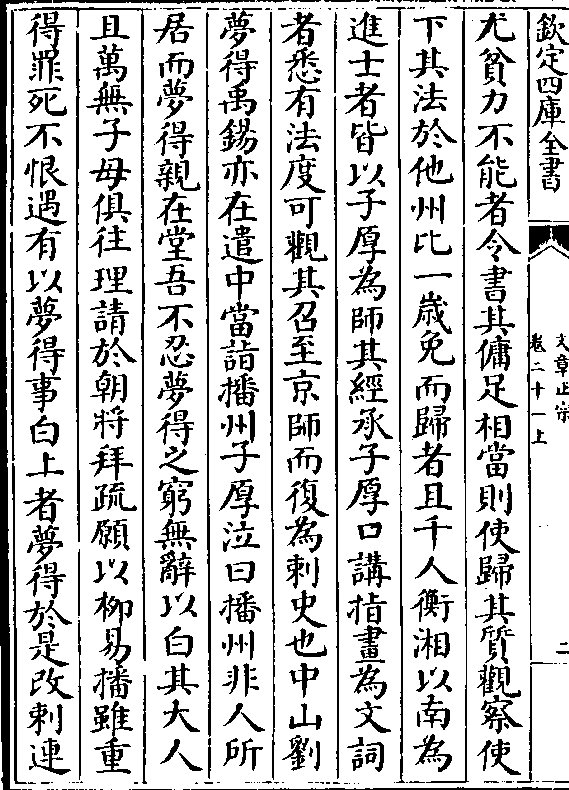 欽定四庫全書
文章正宗
卷二十一上
二
尤貧力不能者令書其傭足相當則使歸其質觀察使
下其法於他州比一歲免而歸者且千人衡湘以南為
進士者皆以子厚為師其經承子厚口講指畫為文詞
者悉有法度可觀其召至京師而復為刺史也中山劉
夢得禹錫亦在遣中當詣播州子厚泣曰播州非人所
居而夢得親在堂吾不忍夢得之窮無辭以白其大人
且萬無子母俱往理請於朝將拜疏願以柳易播雖重
得罪死不恨遇有以夢得事白上者夢得於是改刺連